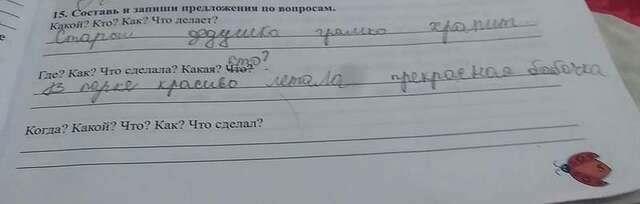 15. Составь и запиши предложения по вопросам.
Какой? Кто? Как? Что делает?
Старый дедушка громко храпит
Где? Как? Что сделала? Какая? Что? Кто?
Вз парке красиво летала прекрасная бабочка
Когда? Какой? Что? Как? Что сделал?